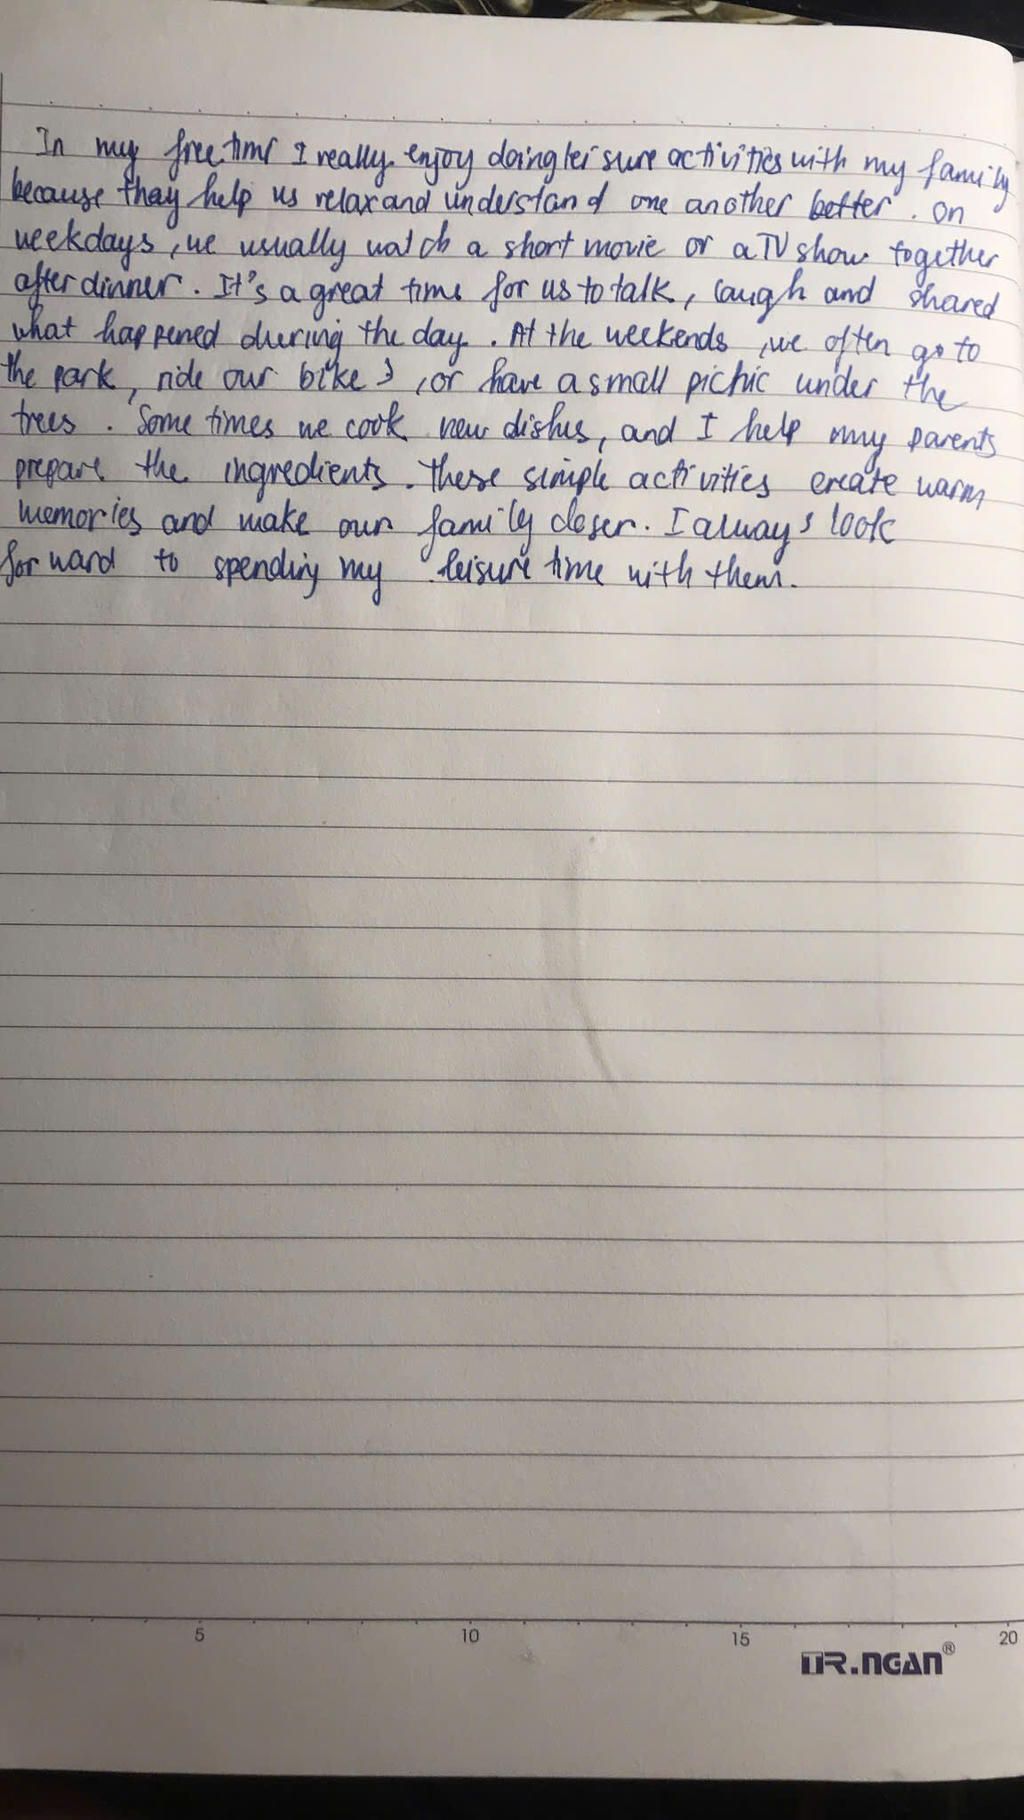 In my free time I really enjoy doing leisure activities with my family
because thay help us relax and understand one another better. On
weekdays, we usually watch a short movie or a TV show together
after dinner. It's a great time for us to talk, laugh and shared
what happened during the day. At the weekends, we often go to
the park, ride our bikes, or have a small picnic under the
trees. Sometimes we cook new dishes, and I help my parents
prepare the ingredients. These simple activities create warm
memories and make our family closer. I always look
forward to spending my leisure time with them.
5 10 15 20
TR.NGAN®